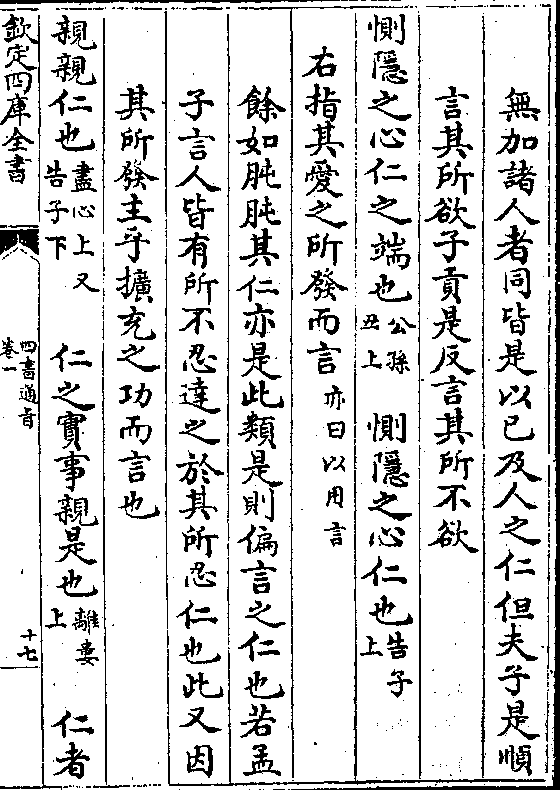 無加諸人者同皆是以已及人之仁但夫子是順
言其所欲子貢是反言其所不欲
惻隱之心仁之端也公孫丑上 惻隱之心仁也告子上
右指其愛之所發而言亦曰以用言
餘如肫肫其仁亦是此類是則偏言之仁也若孟
子言人皆有所不忍達之於其所忍仁也此又因
其所發主乎擴充之功而言也
親親仁也盡心上又告子下 仁之實事親是也離婁上 仁者
欽定四庫全書
四書通旨
卷一
十七